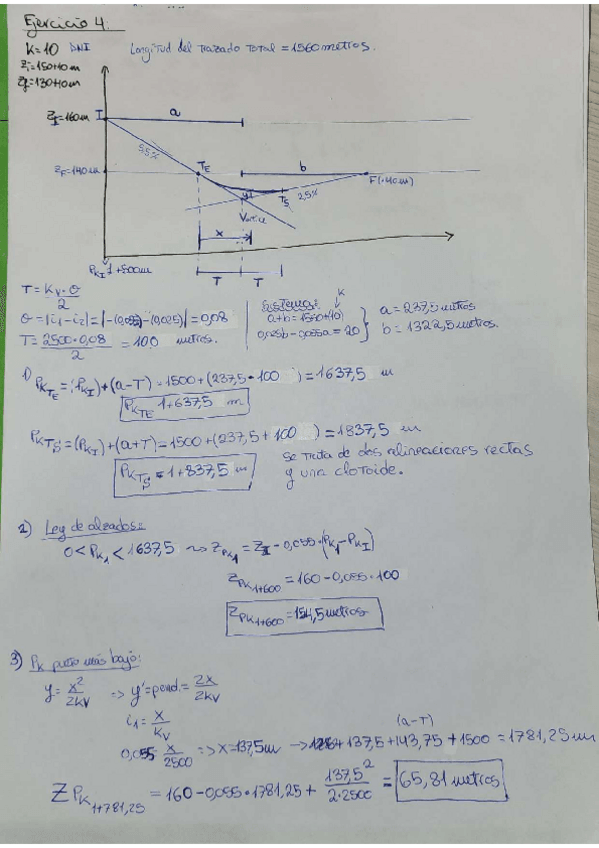 Ejercicio 4.
K=10 DNI
Longitud del trazado total = 1560 metros.
Zi=150+10 m
Zf=130+10m
ZI=160m
I
a
5,5%
TE
b
ZF=140m
F(140m)
TS
2,5%
Vertice
x
T
T
PKI 1+500m
T = Kv·θ / 2
θ = |i1-i2| = |-(0,055)-(0,025)| = 0,08
T = 2500·0,08 / 2 = 100 metros.
Sistema:
K
a+b = 1550+10
0,025b-0,055a=20
a = 237,5 metros
b = 1322,5 metros.
1) PKTE = (PKI)+(a-T) = 1500+(237,5-100) = 1637,5 m
PKTE 1+637,5 m
PKTS = (PKI)+(a+T) = 1500+(237,5+100) = 1837,5 m
PKTS = 1+837,5 m
se trata de dos alineaciones rectas
y una clotoide.
2) Ley de alzados:
0 < PK1 < 1637,5 ⇝ ZPK1 = ZI - 0,055·(PK1-PKI)
ZPK1+600 = 160-0,055·100
ZPK1+600 = 154,5 metros
3) PK punto más bajo:
y = x² / 2kv => y'=pend. = 2x / 2kv
i1 = x / Kv
0,055 = x / 2500 => x=137,5m → 137,5+143,75+1500 = 1781,25m
(a-T)
Z PK1+781,25 = 160-0,055·1781,25 + 137,5² / 2·2500 = 65,81 metros